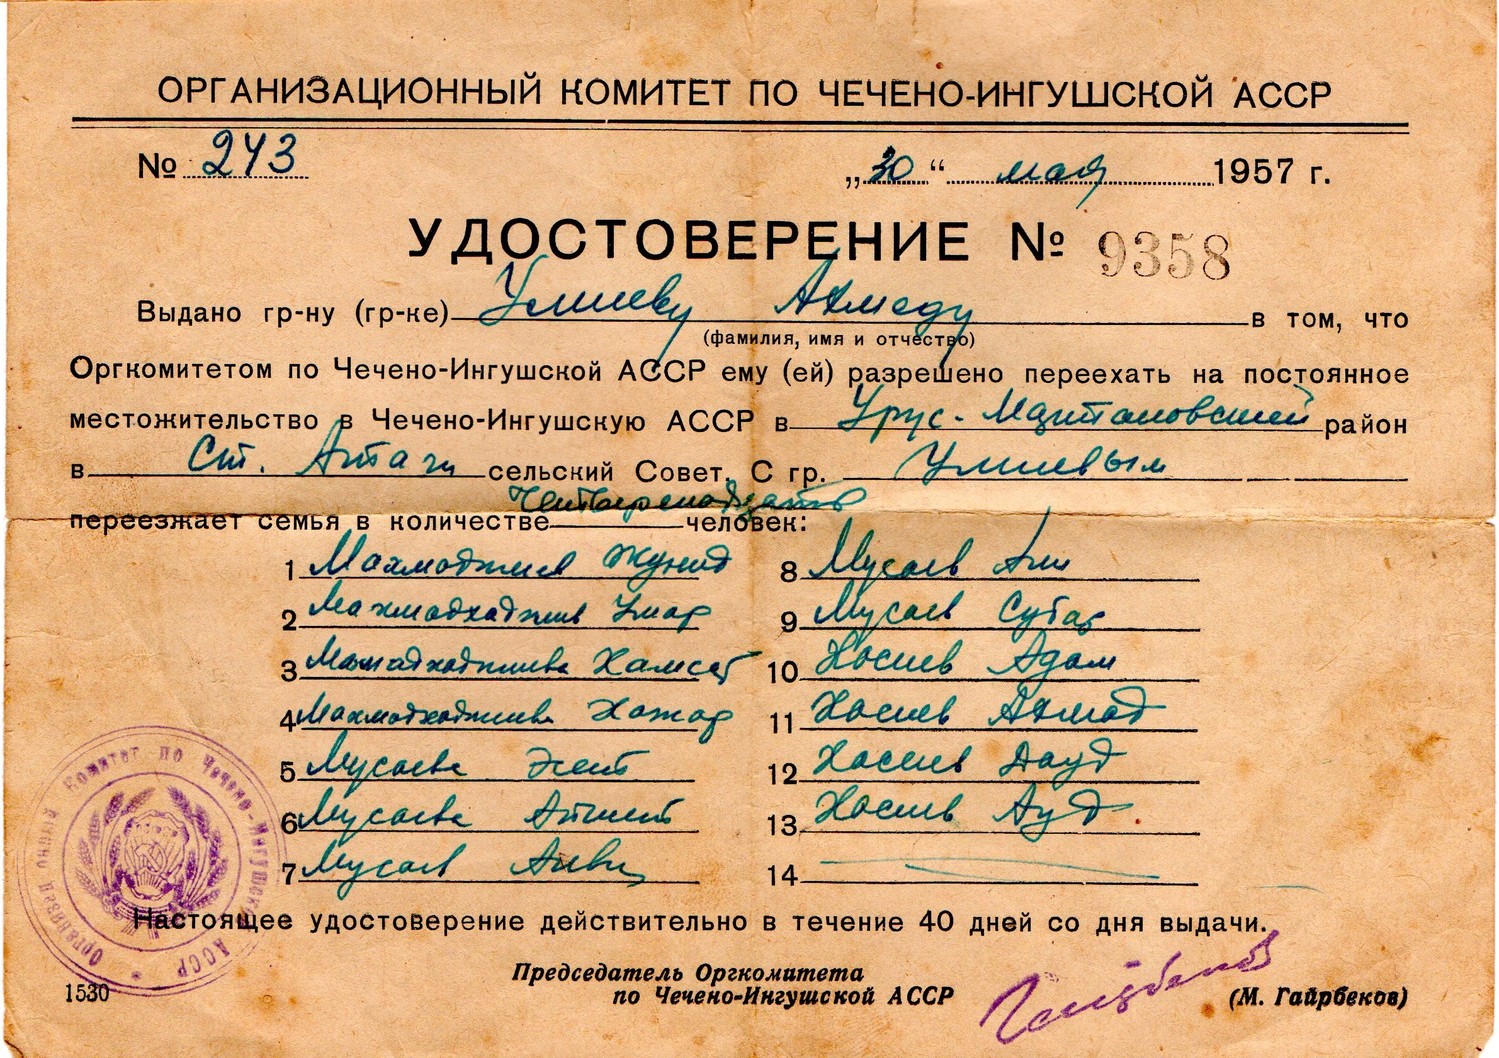 ОРГАНИЗАЦИОННЫЙ КОМИТЕТ ПО ЧЕЧЕНО-ИНГУШСКОЙ АССР
№ 243 „30“ мая 1957 г.
УДОСТОВЕРЕНИЕ № 9358
Выдано гр-ну (гр-ке) Умиеву Ахмеду в том, что
(фамилия, имя и отчество)
Оргкомитетом по Чечено-Ингушской АССР ему (ей) разрешено переехать на постоянное
местожительство в Чечено-Ингушскую АССР в Урус-Мартановский район
в Ст. Атаги сельский Совет. С гр. Умиевым
переезжает семья в количестве Четырнадцать человек:
1 Жунид
2 Умар
3 Хамсат
4 Хажар
5 Мусаева
6 Мусаева
7 Мусаев
8 Мусаев Али
9 Мусаев
10 Хасиев Адам
11 Хасиев Ахмад
12 Хасиев Дауд
13 Хасиев
14
Настоящее удостоверение действительно в течение 40 дней со дня выдачи.
Председатель Оргкомитета
по Чечено-Ингушской АССР Гайрбеков (М. Гайрбеков)
1530
Организационный Комитет по Чечено-Ингушской АССР